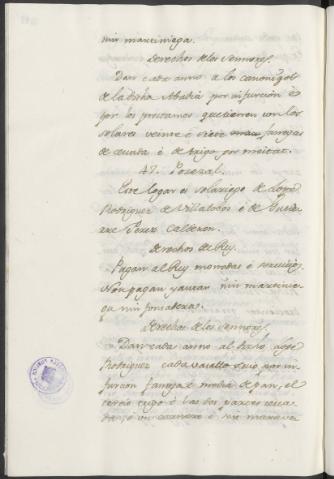 nin martiniega.
Derechos de los Sennores.
Dan cada anno a los canonigos
de la dicha Abadia por infurción e
por los prestamos que tienen con los
solares veinte e siete fanegas
de cevada e de trigo por meitat.
47. Pozezal.
Este logar es solariego de Lope
Rodriguez de Villalobos e de Gutie-
rre Perez Calderon.
Derechos del Rey.
Pagan al Rey monedas e servicios.
Non pagan yantar nin martinie-
ga nin fonsadera.
Derechos de los Sennores.
Dan cada anno al dicho Lope
Rodriguez cada vasallo suio por in-
furcion fanega e media de pan, el
tercio trigo e las dos partes ceva-
da, e un carnero e seis marave-